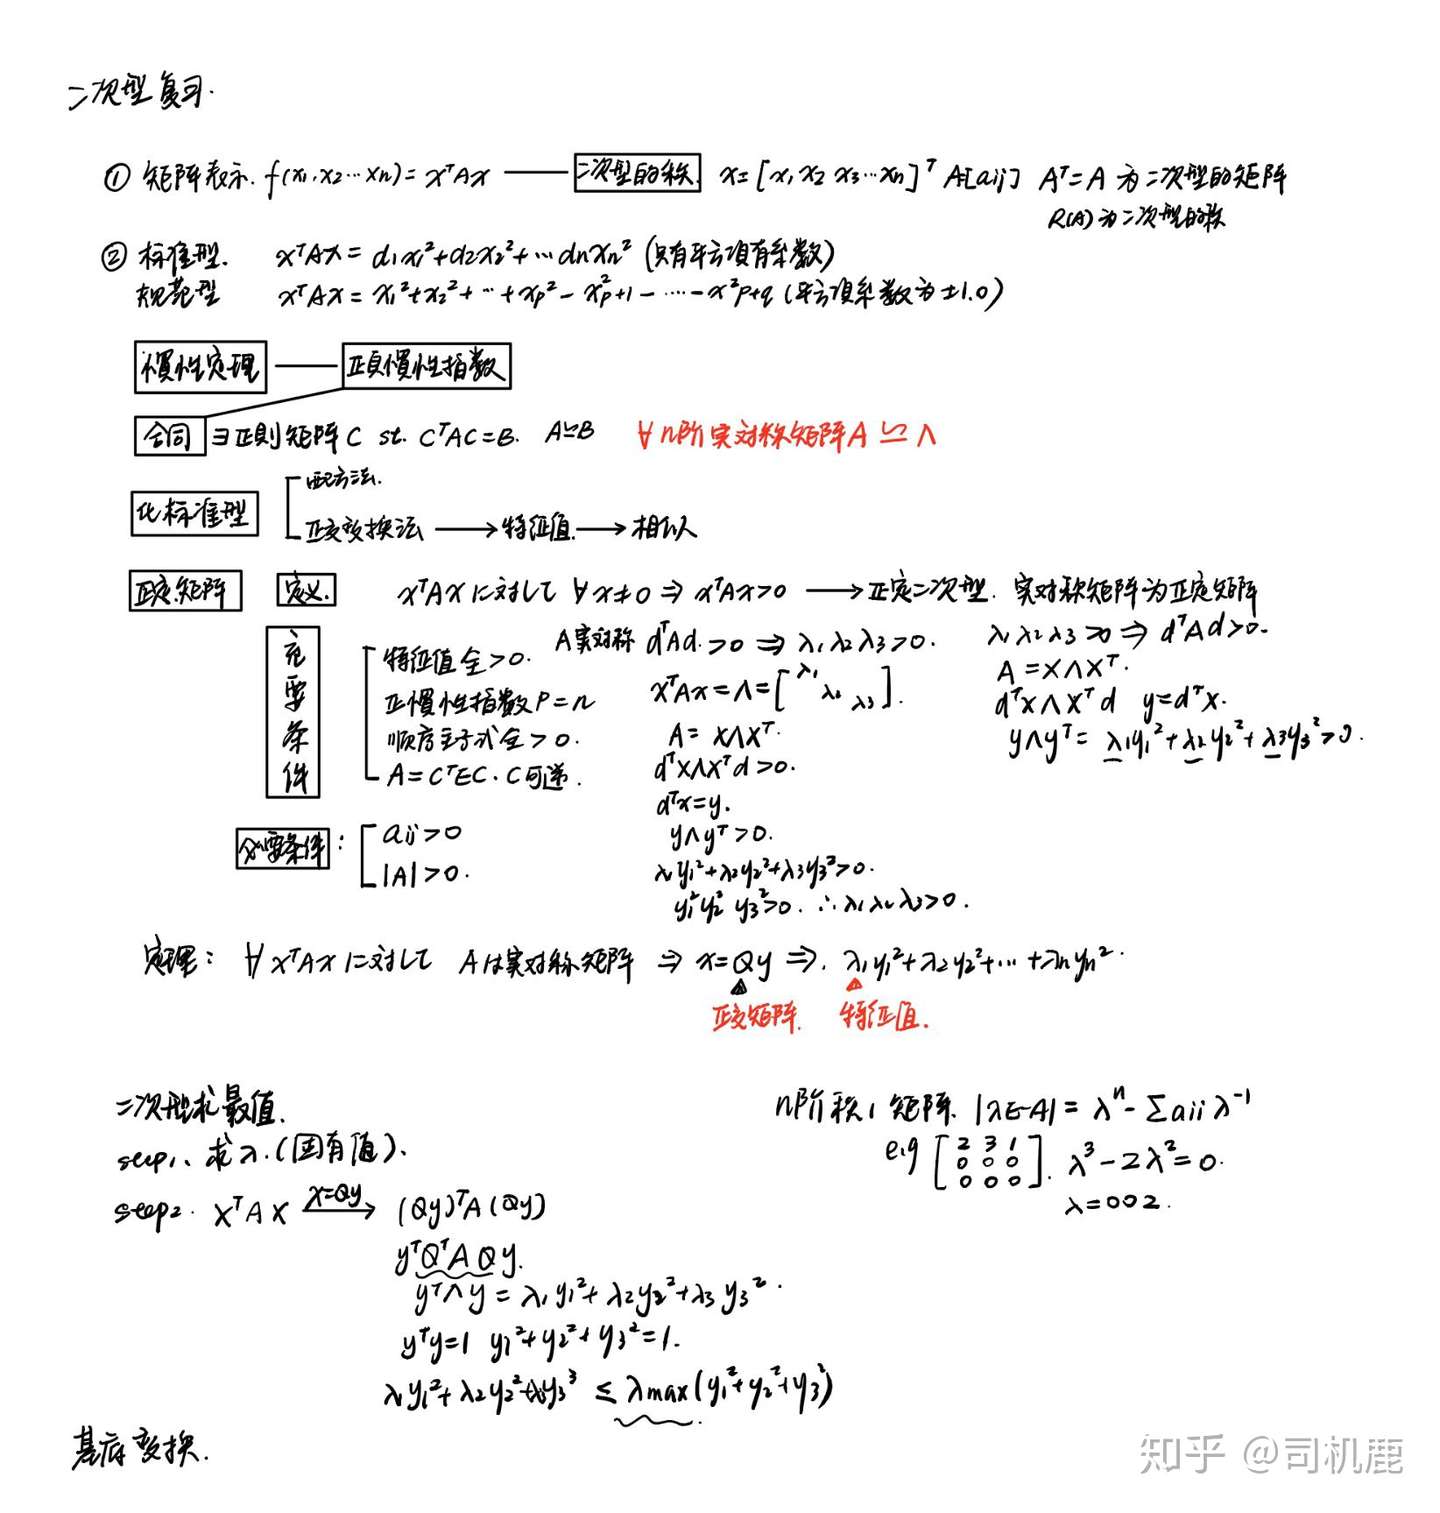 二次型复习.
① 矩阵表示. f(x₁,x₂…xₙ)=xᵀAx —— 二次型的秩. x=[x₁ x₂ x₃…xₙ]ᵀ A=[aij] Aᵀ=A 为二次型的矩阵
R(A)为二次型的秩
② 标准型. xᵀAx=d₁x₁²+d₂x₂²+…dₙxₙ² (只有平方项有系数)
规范型 xᵀAx=x₁²+x₂²+…+xp²-x²p+1-…-x²p+q (平方项系数为±1.0)
惯性定理 —— 正负惯性指数
合同 ∃正則矩阵C st. CᵀAC=B. A≃B ∀n阶实对称矩阵A ≃ Λ
化标准型
配方法.
正交变换法 → 特征值. → 相似
正定矩阵 定义. xᵀAxに対して ∀x≠0 ⇒ xᵀAx>0 → 正定二次型. 实对称矩阵为正定矩阵
充要条件
特征值全>0.
正惯性指数P=n
顺序主子式全>0.
A=CᵀEC. C可逆.
A实对称 dᵀAd.>0 ⇒ λ₁λ₂λ₃>0.
xᵀAx=Λ=[λ₁ λ₂ λ₃].
A=xΛxᵀ.
dᵀxΛxᵀd>0.
dᵀx=y.
yΛyᵀ>0.
λ₁y₁²+λ₂y₂²+λ₃y₃²>0.
y₁²y₂²y₃²>0. ∴λ₁λ₂λ₃>0.
λ₁λ₂λ₃>0 ⇒ dᵀAd>0.
A=xΛxᵀ.
dᵀxΛxᵀd y=dᵀx.
yΛyᵀ=λ₁y₁²+λ₂y₂²+λ₃y₃²>0.
必要条件:
aij>0
|A|>0.
定理: ∀xᵀAxに対して Aは実対称矩阵 ⇒ x=Qy ⇒. λ₁y₁²+λ₂y₂²+…+λₙyₙ².
正交矩阵. 特征值.
二次型求最值.
step1、求λ.(固有值).
step2. xᵀAx x=Qy → (Qy)ᵀA(Qy)
yᵀQᵀAQy.
yᵀΛy=λ₁y₁²+λ₂y₂²+λ₃y₃².
yᵀy=1 y₁²+y₂²+y₃²=1.
λ₁y₁²+λ₂y₂²+λ₃y₃³ ≤ λmax(y₁²+y₂²+y₃²)
n阶秩1矩阵. |λE-A|=λⁿ-∑aiiλ⁻¹
e.g [2 3 1
0 0 0
0 0 0]. λ³-2λ²=0.
λ=0 0 2.
基底变换.
知乎 @司机鹿